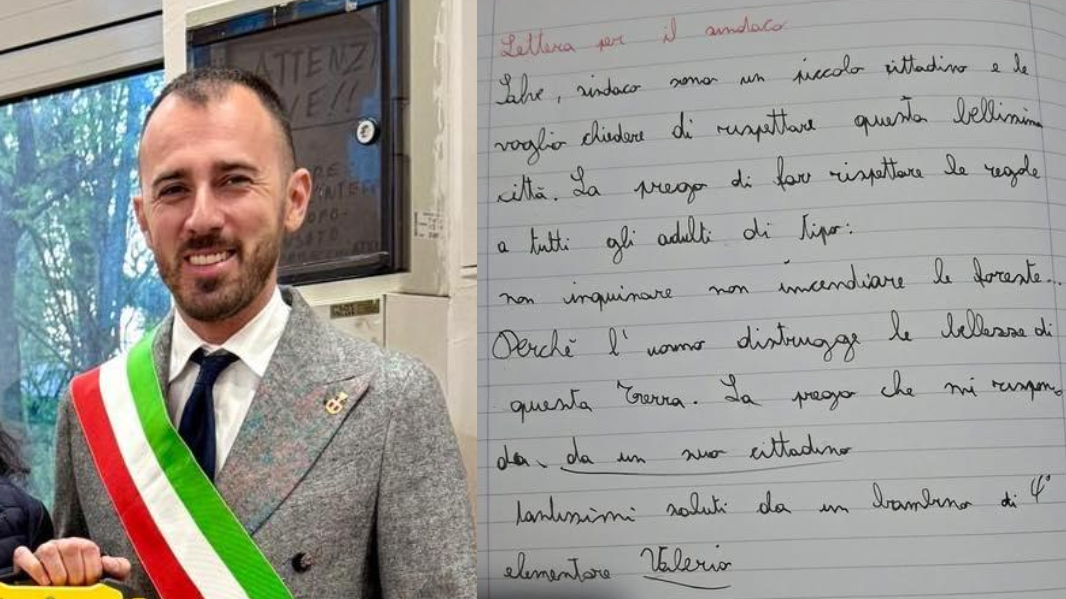 ATTENZI
VE!!
Lettera per il sindaco
Salve, sindaco sono un piccolo cittadino e le
voglio chiedere di rispettare questa bellissima
città. La prego di far rispettare le regole
a tutti gli adulti di tipo:
non inquinare non incendiare le foreste...
Perché l'uomo distrugge le bellezze di
questa Terra. La prego che mi rispon
da, da un suo cittadino
tantissimi saluti da un bambino di 4°
elementare Valerio